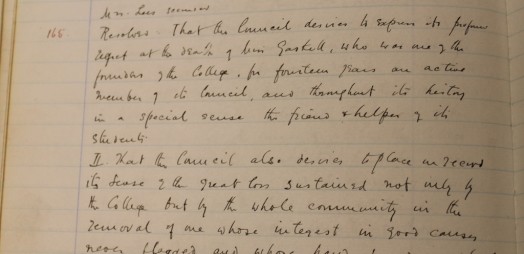 Mrs. Lees seconded
168 Resolved That the Council desires to express its profound
regret at the death of Miss Gaskell, who was one of the
founders of the College, for fourteen years an active
member of its Council, and throughout its history
in a special sense the friend & helper of its
Students
II. That the Council also desires to place on record
its sense of the great loss sustained not only by
the College but by the whole community in the
removal of one whose interest in good causes
never flagged and whose hand